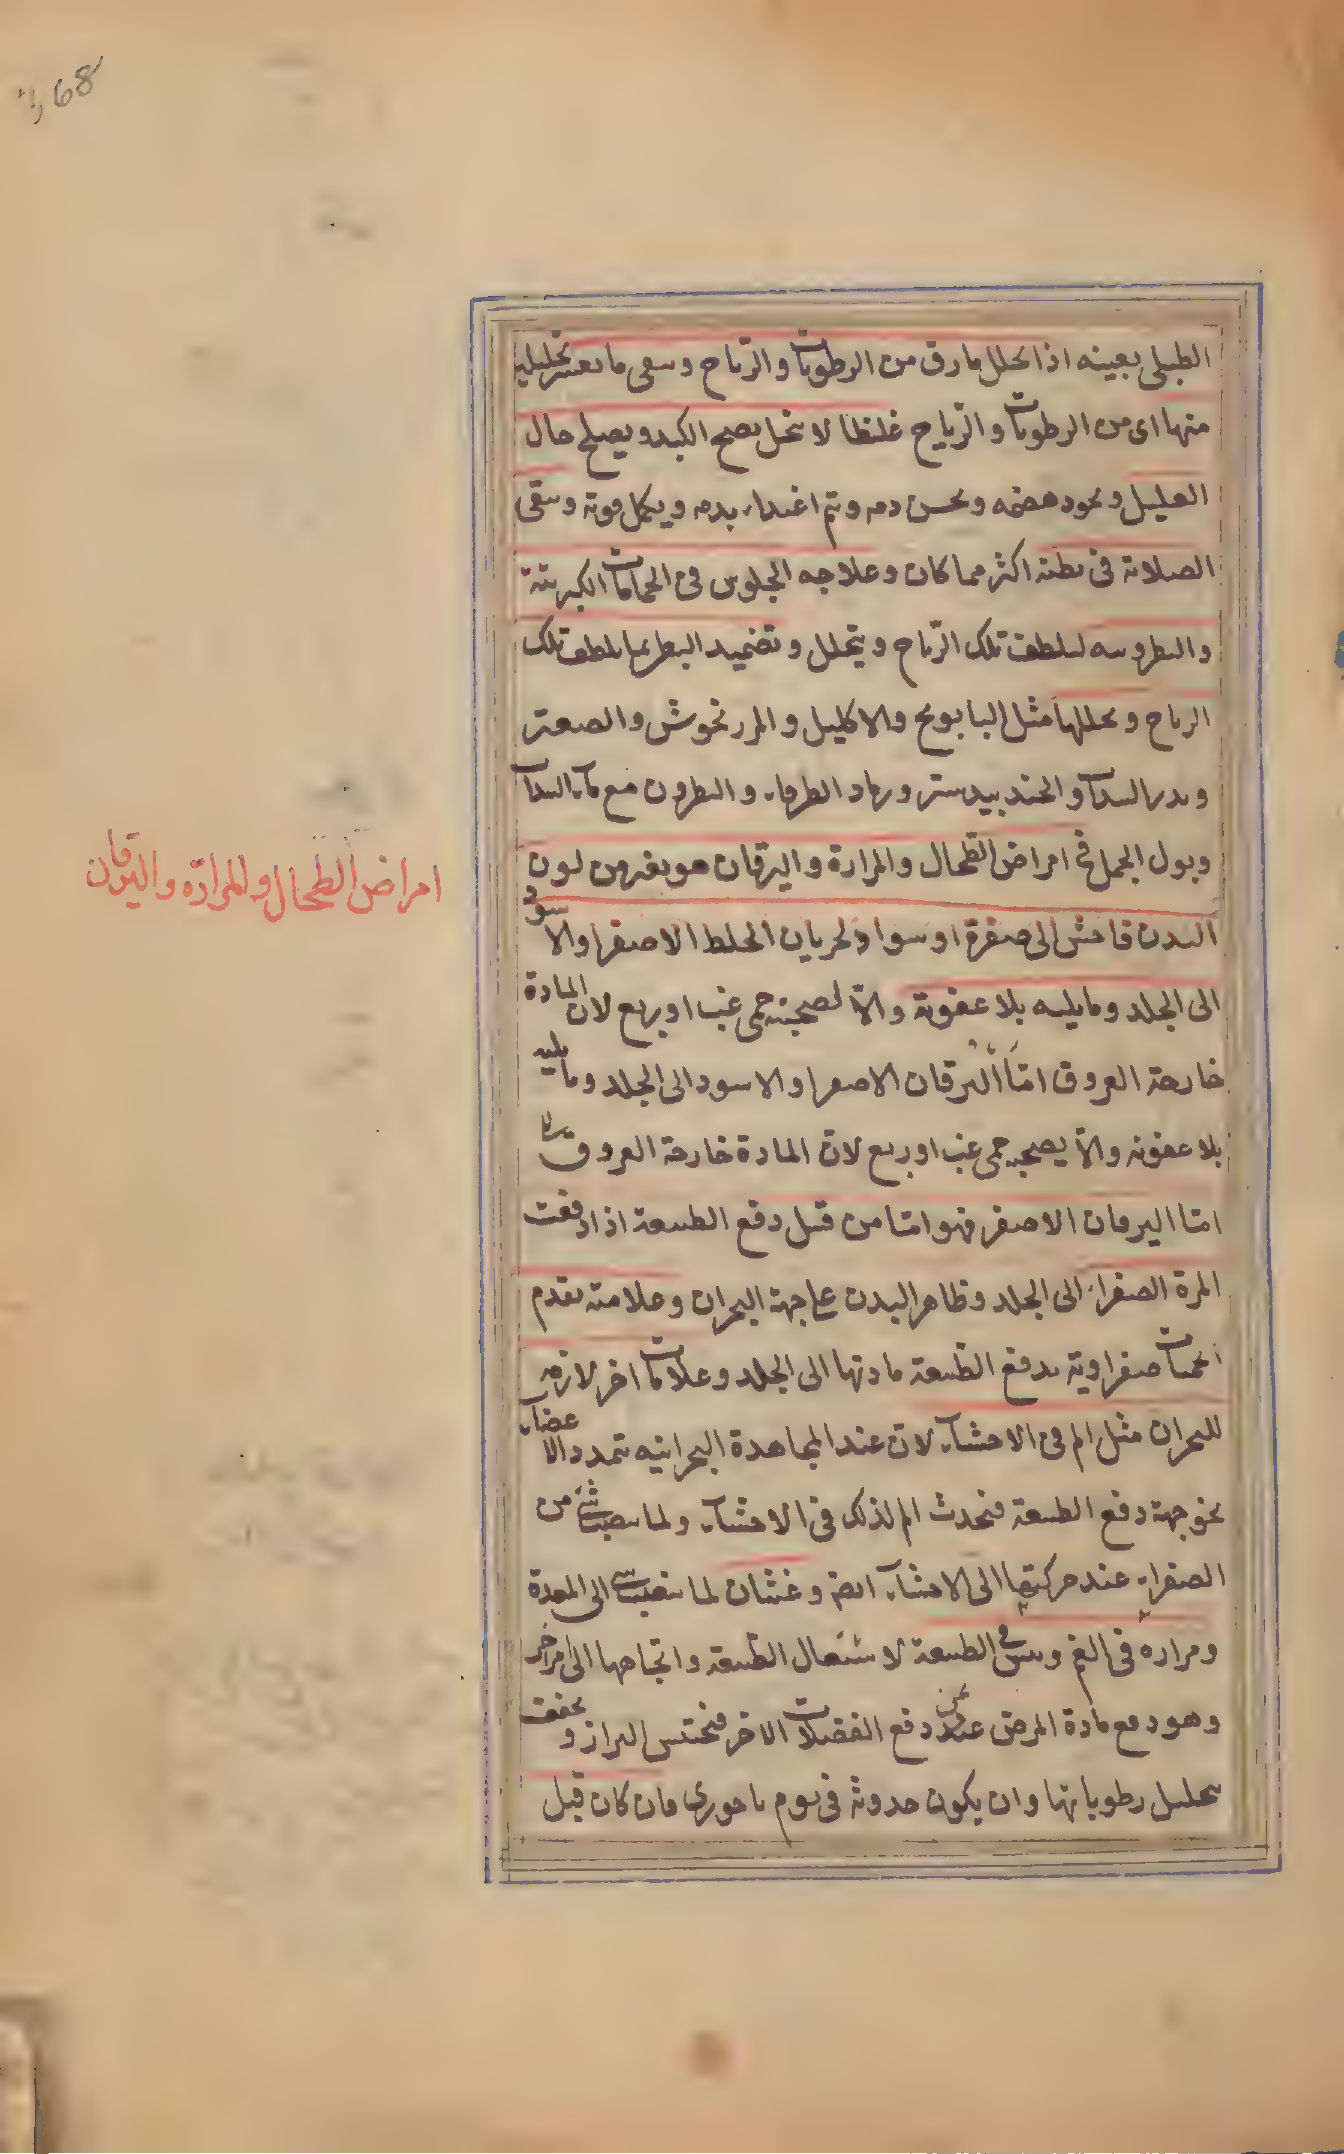 168
الطبلى بعينه اذا تحلل مارق من الرطوبات والرياح وبقى ما تعسر تحليله
منها اى من الرطوبات والرياح غلظا لا تنحل بصح الكبد ويصلح حال
العليل ويجود هضمه ويحسن دمه ويتم اغتذاء بدنه ويكمل قوته وبقى
الصلابة فى بطنه اكثر مما كان وعلاجه الجلوس فى الحمامات الكبريتية
والبطرونيه لتلطف تلك الرياح ويتحلل وتضميد البطن بما يلطف تلك
الرياح ويحللها مثل البابونج والاكليل والمرزنجوش والصعتر
وبذر السداب والجند بيدستر ورماد الطرفاء والنطرون مع ماء السداب
وبول الجمل فى امراض الطحال والمرارة واليرقان هو تغير من لون
امراض الطحال والمرارة واليرقان
البدن فاحش الى صفرة او سواد لجريان الخلط الاصفر او الاسود
الى الجلد وما يليه بلا عفونة والا لصحبته حمى غب او ربع لان المادة
خارجة العروق امّا اليرقان الاصفر او الاسود الى الجلد وما يليه
بلا عفونه والا يصحبه حمى غب او ربع لان المادة خارجة العروق
امّا اليرقان الاصفر فهو امّا من قبل دفع الطبيعة اذا دفعت
المرة الصفراء الى الجلد وظاهر البدن على جهة البحران وعلامته تقدم
الحميات صفراوية تدفع الطبيعة مادتها الى الجلد وعلامات اخر لازمه
للبحران مثل الم فى الاحشاء لان عند المجاهدة البحرانيه تتمدد الاعضاء
نحو جهة دفع الطبيعة فيحدث الم لذلك فى الاحشاء ولما ينصب شئ من
الصفراء عند حركتها الى الاحشاء ايضا وغثيان لما ينصب شئ الى المعدة
ومرارة فى الفم ويبس فى الطبيعة لاشتغال الطبيعة واتجاهها الى امر اخر
وهو دفع مادة المرض عن دفع الفضلات الاخر فيحتبس البراز ويجفف
بتحليل رطوباتها وان يكون حدوثه فى يوم باحورى فان كان قبل